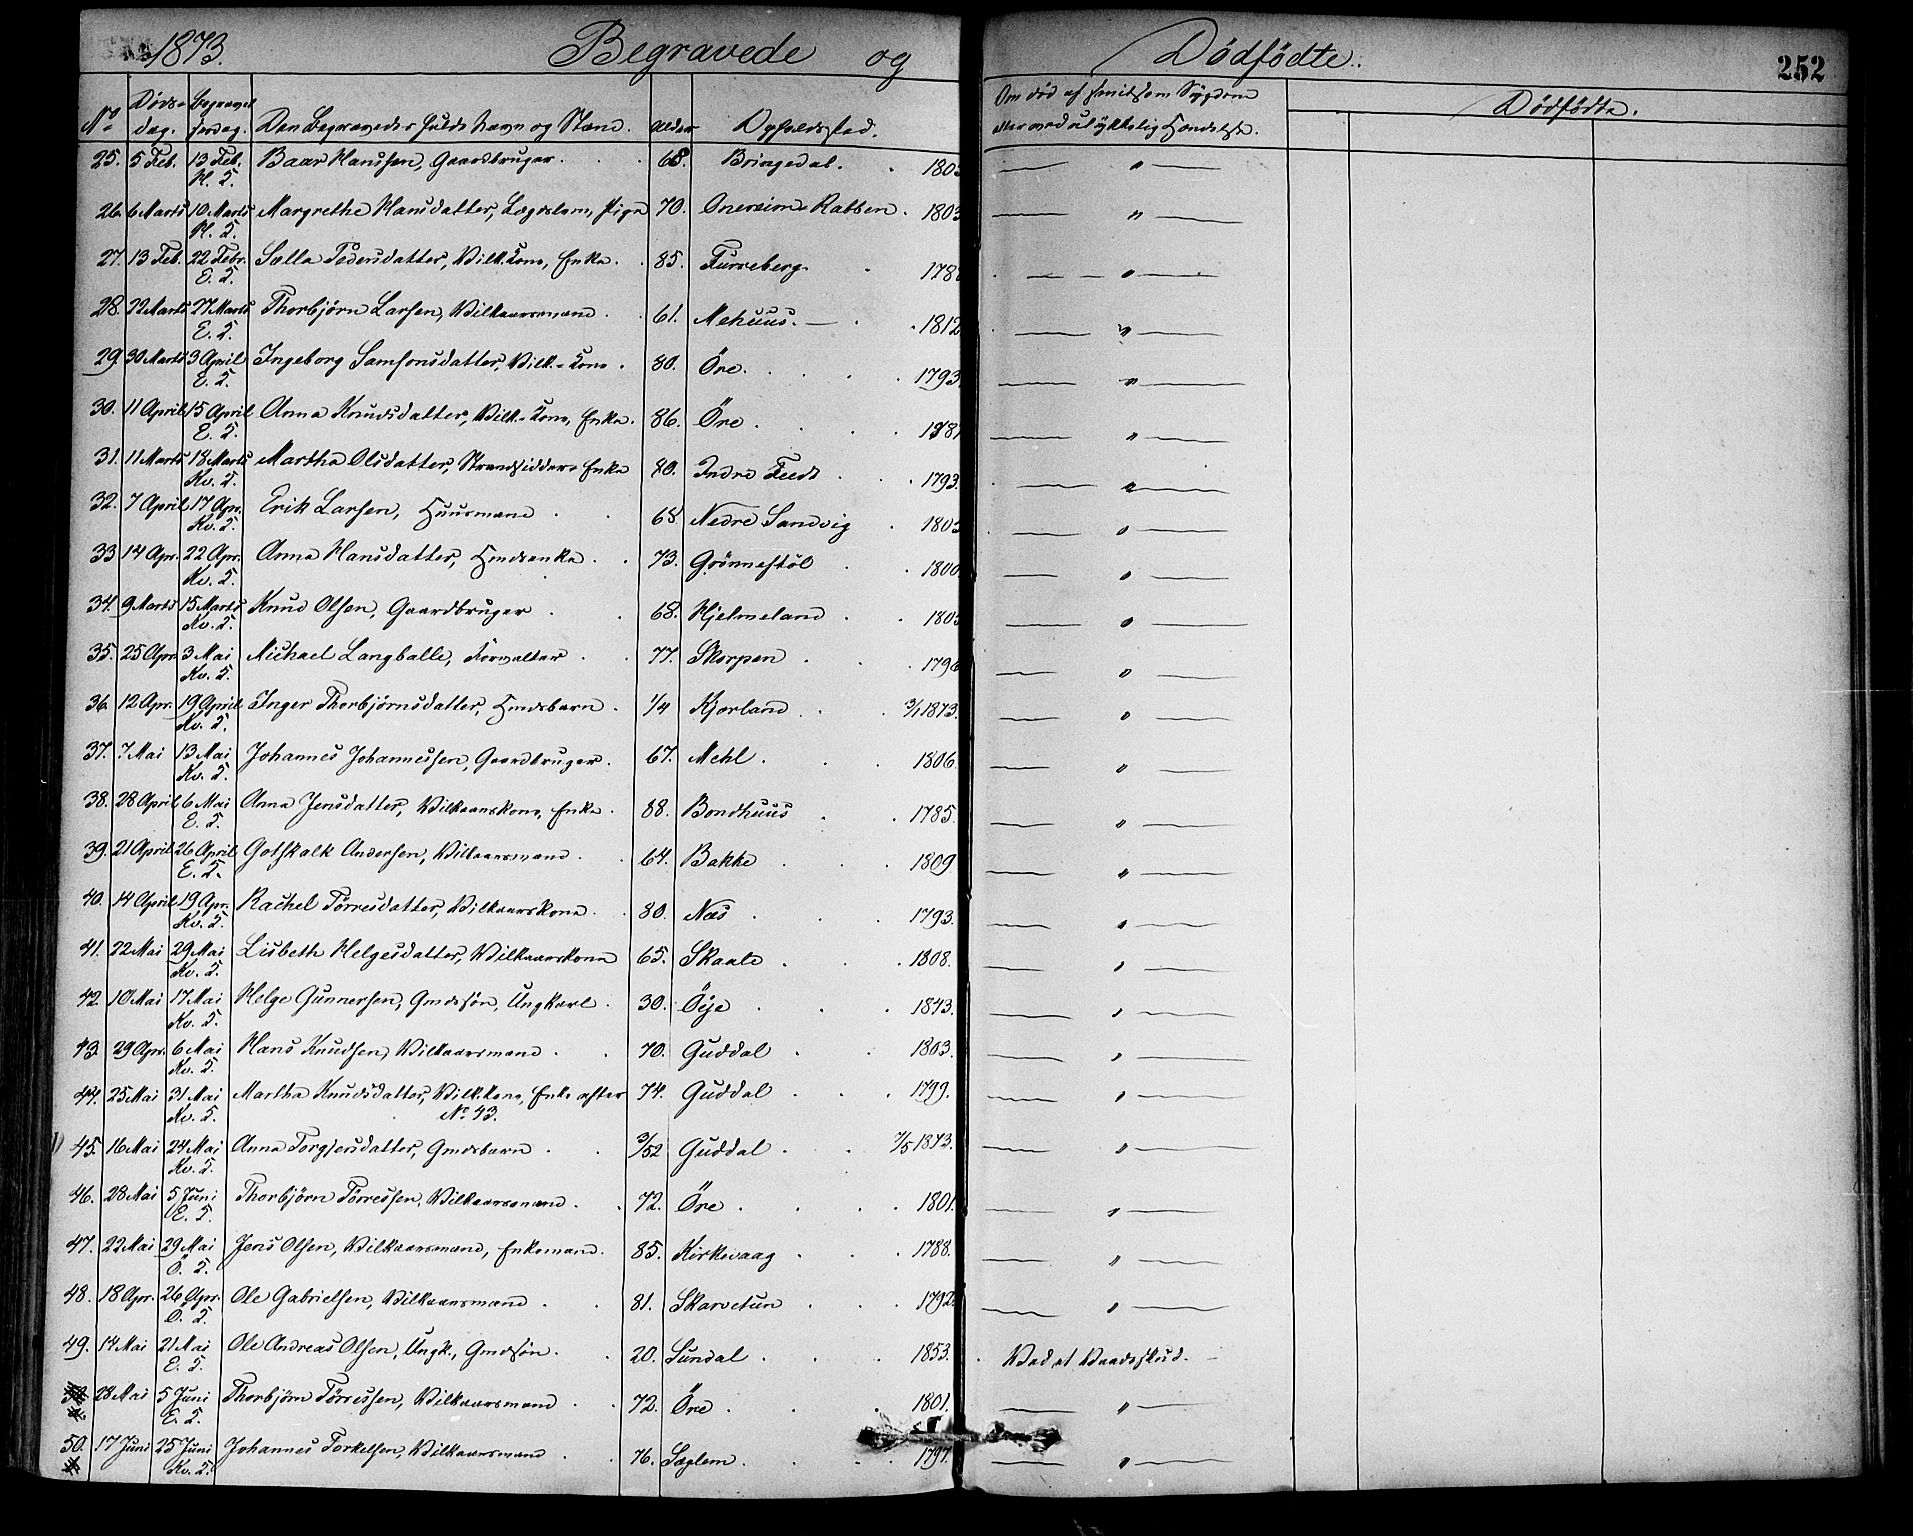 1873. Begravede og Dødfødte. 252
No Døds-dag. Begravelsesdag. Den Begravedes fulde Navn og Stand. Alder Opholdssted. Om død af smitsom Sygdom eller ved ulykkelig Hændelse. Dødfødte.
25. 5 Feb. 13 Feb. Baar Hanssen, Gaardbruger. 68. Bringedal. 180 — " —
H. T.
26. 6 Marts 10 Marts Margrethe Hansdatter, Lægdslem, Pige 70. Rabben. 1803 — " —
H. T.
27. 13 Feb. 22 Febr. Sælla Pedersdatter, Vilk. Kone, Enke. 85. Furreberg. 178 — " —
E. T.
28. 22 Marts 27 Marts Thorbjørn Larsen, Vilkaarsmand. 61. Mehuus. — 1812 — " —
E. T.
29. 30 Marts 3 April Ingeborg Samsonsdatter, Vilk.-Kone. 80. Öre. 1793 — " —
E. T.
30. 11 April 15 April Anna Knudsdatter, Vilk.-Kone, Enke. 86. Öre. 1787 — " —
E. T.
31. 11 Marts 18 Marts Martha Olsdatter, Strandsidder-Enke 80. Indre Feed. 1793. — " —
Kv. T.
32. 7 April 17 Apr. Erik Larsen, Huusmand. 68. Nedre Sandvig. 1805 — " —
Kv. T.
33 14 Apr. 22 Apr. Anna Hansdatter, Hmdsenke. 73. Grønnestöl. 1800 — " —
Kv. T.
34. 9 Marts 15 Marts Knud Olsen, Gaardbruger. 68. Hjelmeland. 1805 — " —
Kv. T.
35. 25 Apr 3 Mai Michael Langballe, Forvalter. 77. Skorpen. 1796 — " —
Kv. T.
36. 12 Apr. 19 April Inger Thorbjørnsdatter, Hmdsbarn. 1/4 Kjærland. 3/1 1873. — " —
Kv. T.
37. 7 Mai 13 Mai Johannes Johannessen, Gaardbruger. 67. Mehl. 1806. — " —
Kv. T.
38. 28 April 6 Mai Anna Jensdatter, Vilkaarskone, Enke. 88. Bondhuus. 1785. — " —
E. T.
39. 21 April 26 April Gotskalk Andersen, Vilkaarsmand. 64. Bakke. 1809 — " —
E. T.
40. 14 April 19 Apr. Rachel Tørresdatter, Vilkaarskone. 80. Næs. 1793. — " —
Kv. T.
41. 22 Mai 29 Mai Lisbeth Helgesdatter, Vilkaarskone 65. Skaale. 1808. — " —
Kv. T.
42. 10 Mai 17 Mai Helge Gunnersen, Gmdssøn, Ungkarl. 30. Öije. 1843. — " —
Kv. T.
43. 29 Apr. 6 Mai Hans Knudsen, Vilkaarsmand. 70. Guddal. 1803. — " —
Kv. T.
44. 25 Mai 31 Mai Martha Knudsdatter, Vilk.kone, Enke efter 74. Guddal. 1799. — " —
Kv. T. No 43.
45. 16 Mai 24 Mai Anna Torgjersdatter, Gmdsbarn. 3/52 Guddal. 7/5 1873. — " —
Kv. T.
46. 28 Mai 5 Juni Thorbjörn Tørressen, Vilkaarsmand. 72. Öre. 1801. — " —
E. T.
47. 22 Mai 29 Mai Jens Olsen, Vilkaarsmand, Enkemand. 85. Kirkevaag. 1788. — " —
Ö. T.
48. 18 Apr. 26 Apr. Ole Gabrielsen, Vilkaarsmand. 81. Skarvetun. 1792 — " —
Ö. T.
49. 14 Mai 21 Mai Ole Andreas Olsen, Ungk., Gmdssön. 20. Sundal. 1853. Ved et Vaadeskud. —
E. T.
28 Mai 5 Juni Thorbjørn Tørressen, Vilkaarsmand. 72. Öre. 1801. — " —
E. T.
50. 17 Juni 25 Juni Johannes Torkelsen, Vilkaarsmand. 76. Sæglem. 1797. — " —
Kv. T.